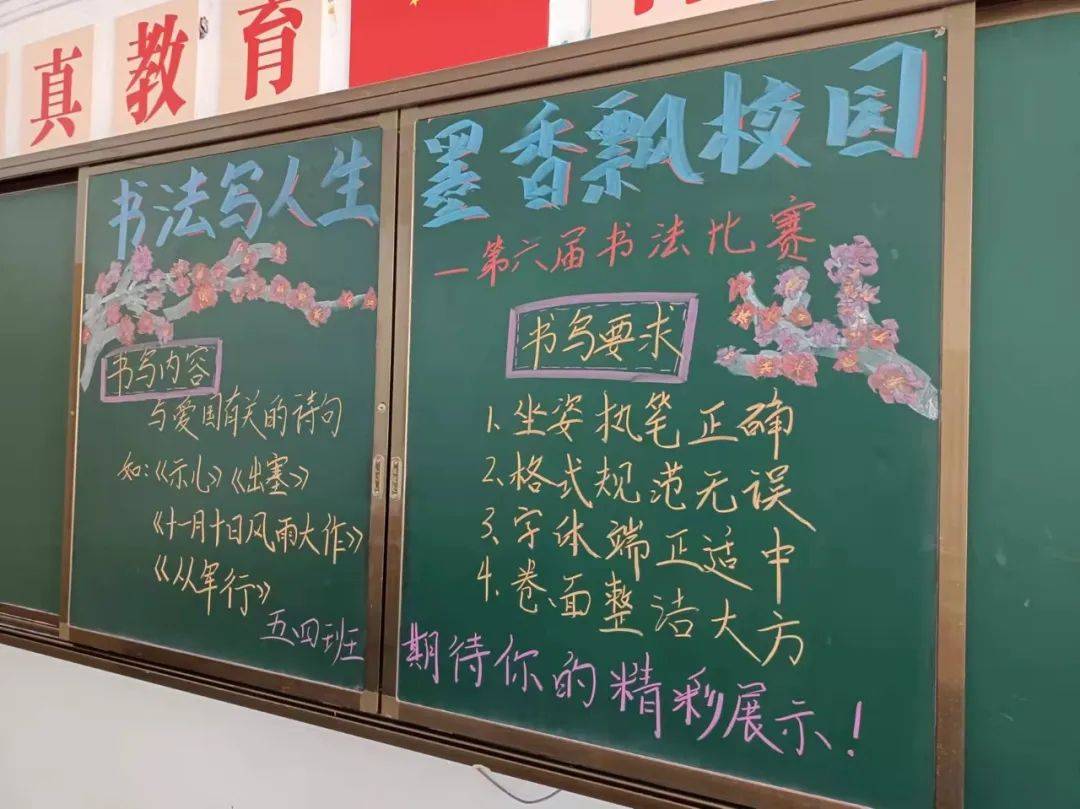 真教育
书法写人生
书写内容
与爱国有关的诗句
如:《示儿》《出塞》
《十一月十日风雨大作》
《从军行》
五、四班
墨香飘校园
—第六届书法比赛
书写要求
1.坐姿执笔正确
2.格式规范无误
3.字体端正适中
4.卷面整洁大方
期待你的精彩展示!